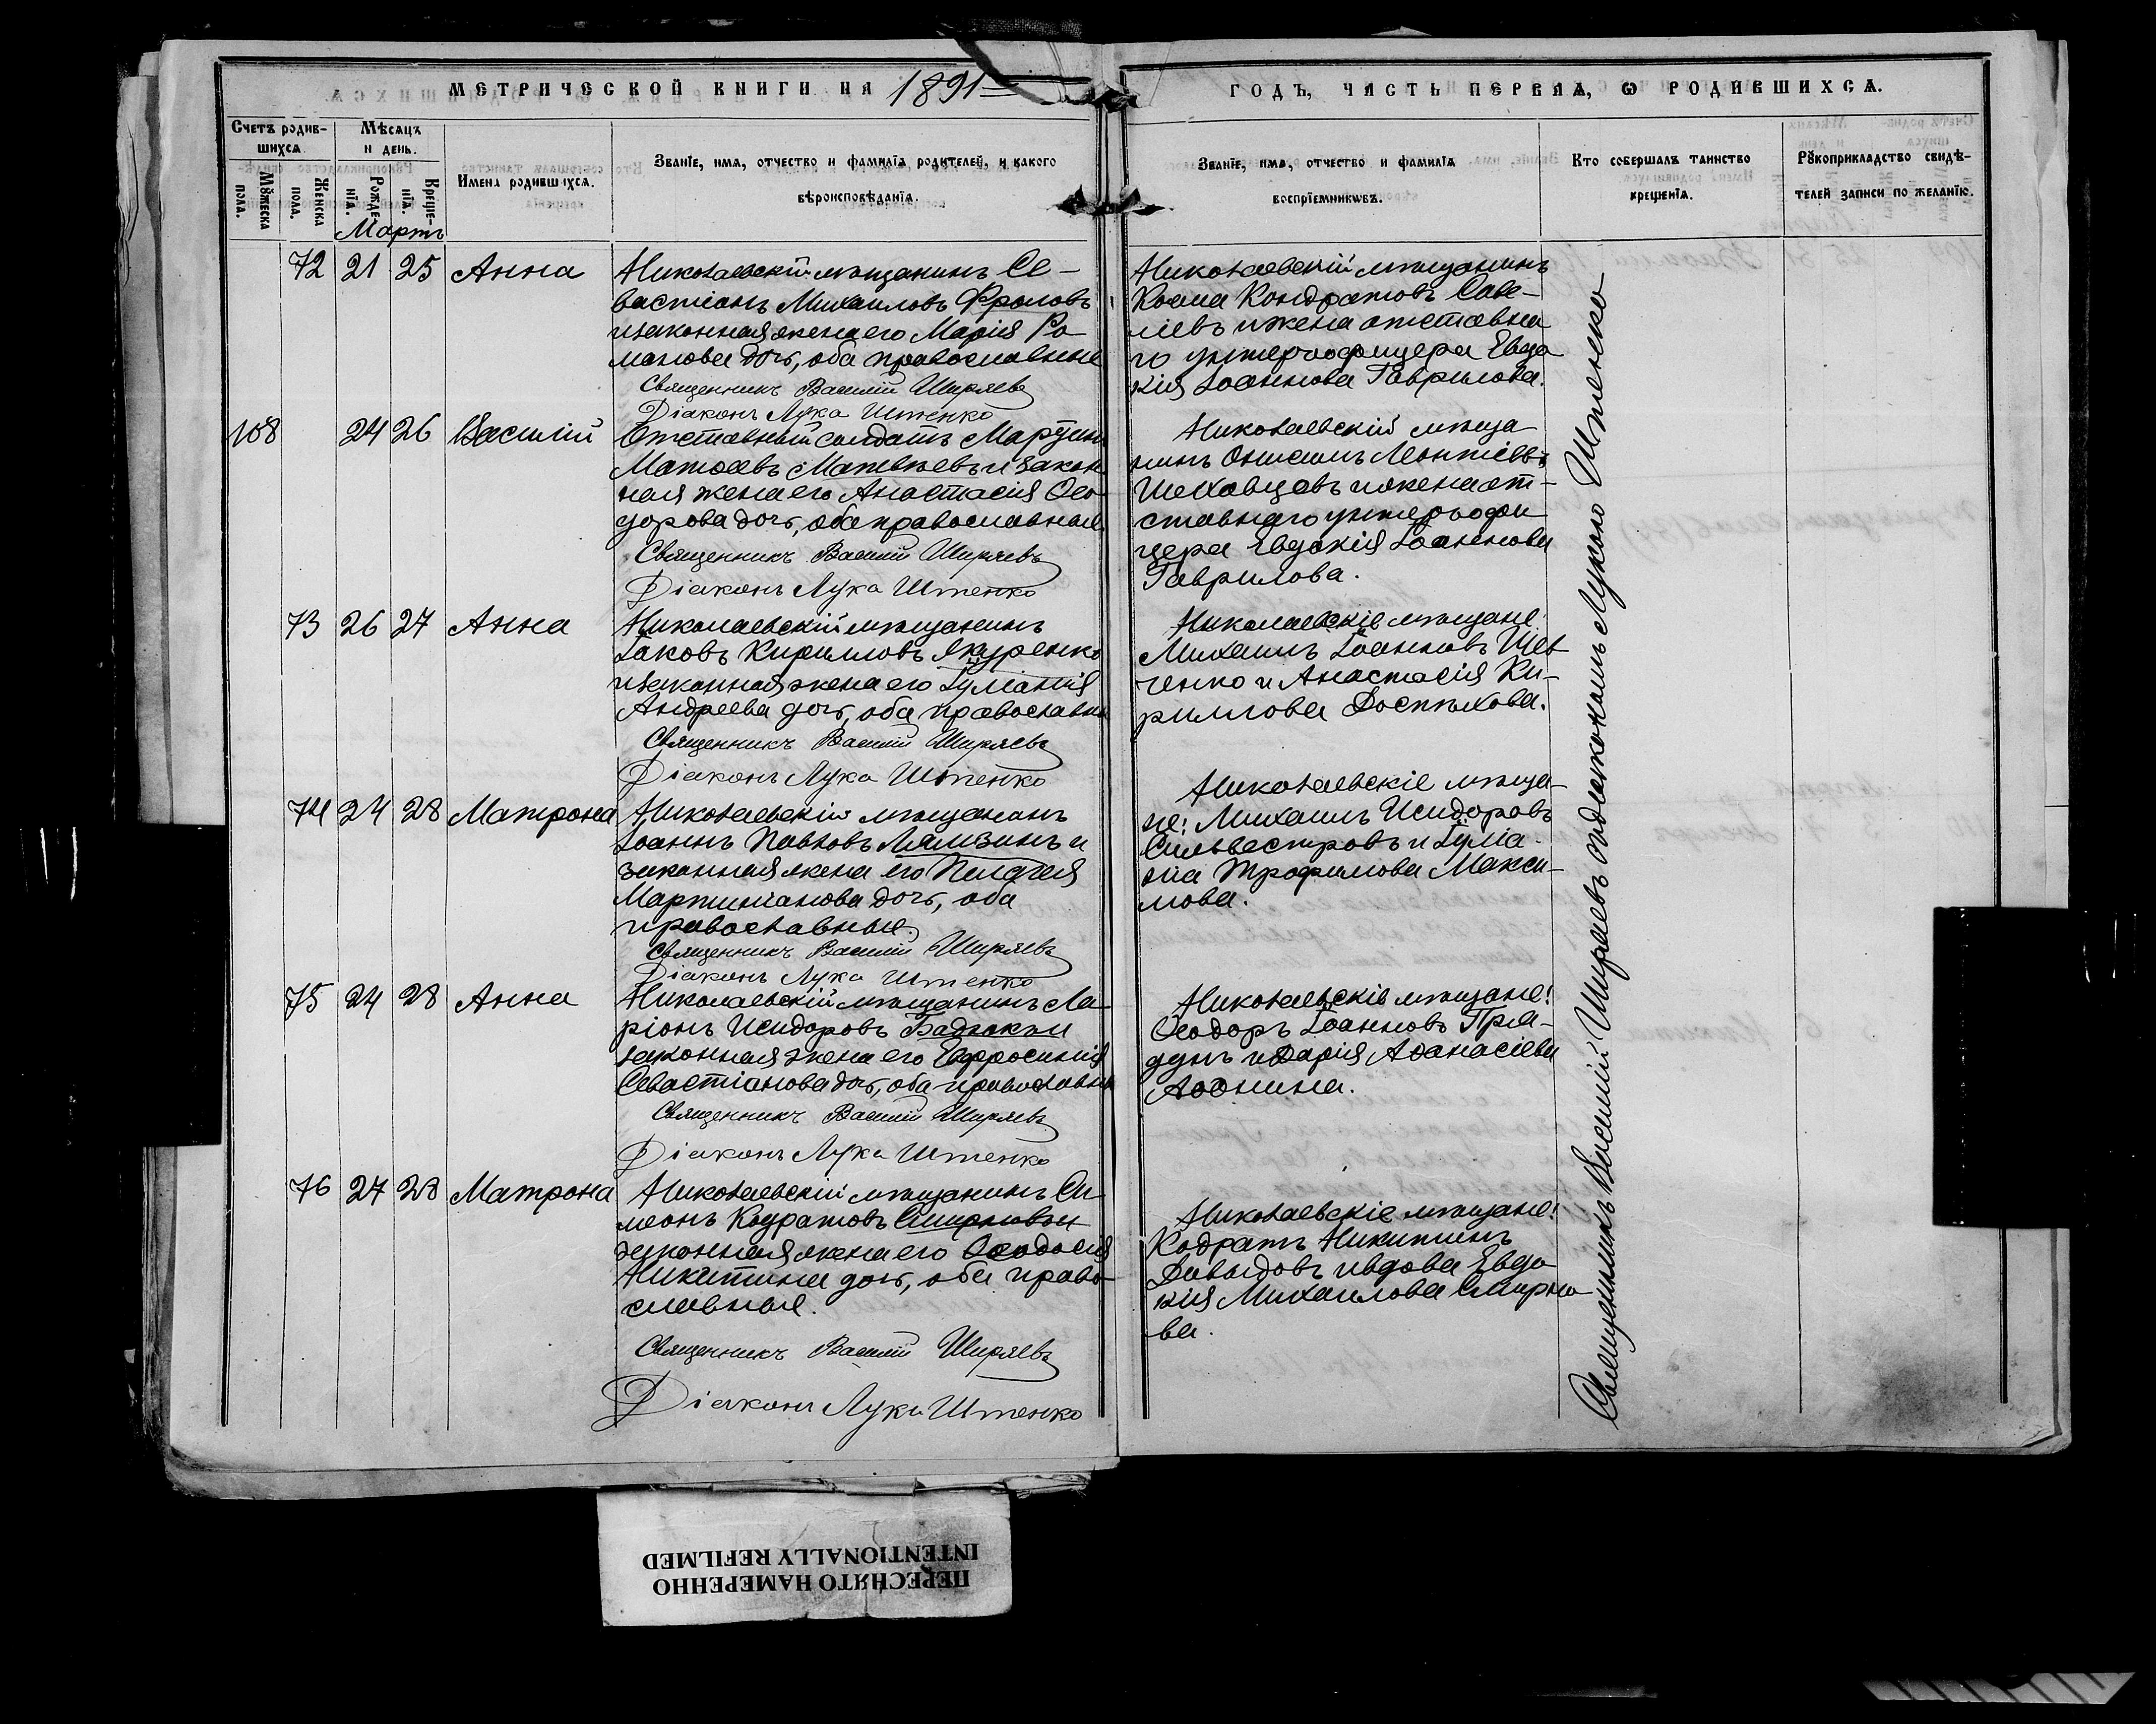 МЕТРИЧЕСКОЙ КНИГИ НА 1891 ГОДЪ, ЧАСТЬ ПЕРВАѦ, Ѡ РОДИВШИХСѦ.
Счетъ родив-
шихсѧ.
Мѣсѧцъ
и день.
Мꙋжеска
пола.
Женска
пола.
Рожде-
нїѧ.
Креще-
нїѧ.
Имена родившихсѧ.
Званїе, имѧ, отчество и фамилїѧ родителей, и какого
вѣроисповѣданїѧ.
Званїе, имѧ, отчество и фамилїѧ
воспрїемникѡвъ.
Кто совершалъ таинство
крещенїѧ.
Рꙋкоприкладство свидѣ-
телей записи по желанїю.
Мартъ
72 21 25 Анна
Николаевскій мѣщанинъ Се-
вастіанъ Михаиловъ Фроловъ
и законная жена его Марія Ро
манова дочь, оба православные
Священникъ Василій Ширяевъ
Діаконъ Лука Штенко
Николаевскій мѣщанинъ
Косма Кондратовъ Саве-
ліевъ и жена отставна
го унтеръ офицера Евдо
кія Іоаннова Гаврилова.
108 24 26 Василій
Отставный солдатъ
Матѳеевъ Матвѣевъ и закон
ная жена его Анастасія Ѳео
дорова дочь, оба православные
Священникъ Василій Ширяевъ
Діаконъ Лука Штенко
Николаевскій мѣща
нинъ Онисимъ Леонтіевъ
Шеховцовъ и жена от-
ставнаго унтеръ офи
цера Евдокія Іоаннова
Гаврилова.
73 26 27 Анна
Николаевскій мѣщанинъ
Іаковъ Кирилловъ Якуренко
и законная жена его Іуліанія
Андреева дочь, оба православны
Священникъ Василій Ширяевъ
Діаконъ Лука Штенко
Николаевскіе мѣщане:
Михаилъ Іоанновъ Шев
ченко и Анастасія Ки-
риллова Доспѣхова.
74 24 28 Матрона
Николаевскій мѣщанинъ
Іоаннъ Павловъ Лямзинъ и
законная жена его Пелагея
Мартиніанова дочь, оба
православные.
Священникъ Василій Ширяевъ
Діаконъ Лука Штенко
Николаевскіе мѣща-
не: Михаилъ Исидоровъ
Сильвестровъ и Іуліа-
нія Трофимова Макси-
мова.
75 24 28 Анна
Николаевскій мѣщанинъ Ла-
ріонъ Исидоровъ
законная жена его Евфросинія
Севастіанова дочь, оба православны
Священникъ Василій Ширяевъ
Діаконъ Лука Штенко
Николаевскіе мѣщане:
Ѳеодоръ Іоанновъ Пря-
дунъ и Дарія Аѳанасіева
Аѳонина.
76 27 28 Матрона
Николаевскій мѣщанинъ Си
меонъ Кодратовъ Смирновъ и
законная жена его Ѳеодосія
Никитина дочь, оба право-
славные.
Священникъ Василій Ширяевъ
Діаконъ Лука Штенко
Николаевскіе мѣщане:
Кодратъ Никитинъ
Давыдовъ и вдова Евдо
кія Михаилова Смирно
ва.
Священникъ Василій Ширяевъ съ діакономъ Лукою Штенко
ПЕРЕСНЯТО НАМЕРЕННО
INTENTIONALLY REFILMED